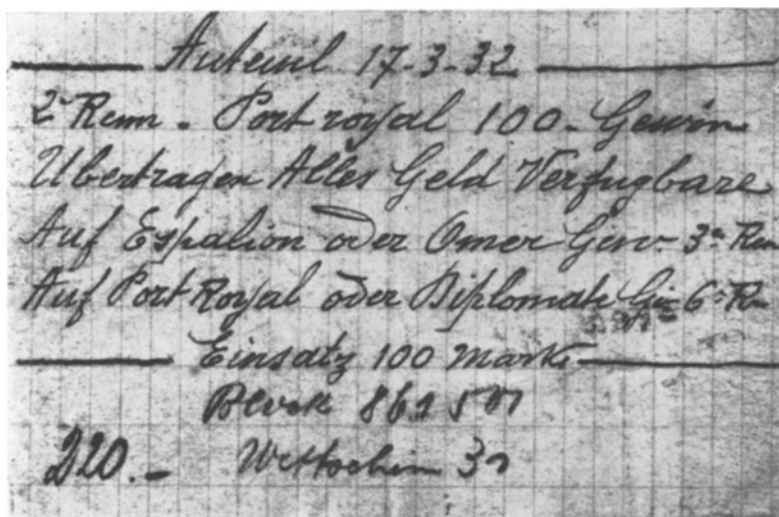 Auteuil 17-3-32
2 Renn. Port royal 100.- Gewin
Ubertragen Alles Geld Verfugbare
Auf Espalion oder Omer Gew. 3 Ren
Auf Port Royal oder Diplomate 6
Einsatz 100 Mark
Block 861
220.- Wettschein